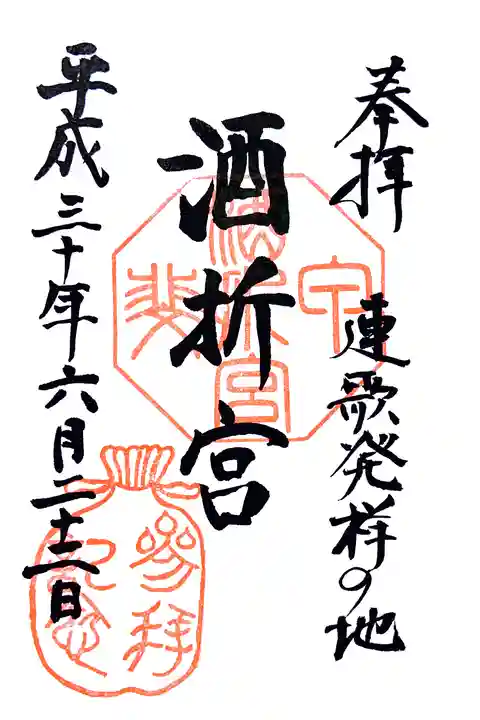 奉拝 連歌発祥の地
酒折宮
平成三十年六月二十三日
酒折宮
甲斐
参拝
記念